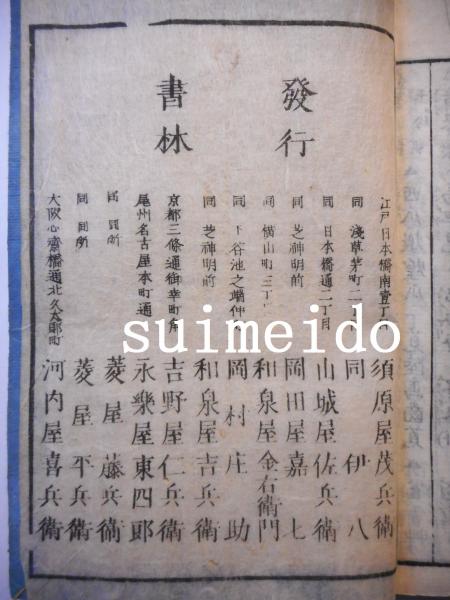 發行
書林
江戸日本橋南壹丁目 須原屋茂兵衛
同 淺草茅町二丁目 同 伊八
同 日本橋通二丁目 山城屋佐兵衛
同 芝神明前 岡田屋嘉七
同 横山町三丁目 和泉屋金右衛門
同 下谷池之端仲町 岡村庄助
同 芝神明前 和泉屋吉兵衛
京都三條通御幸町角 吉野屋仁兵衛
尾州名古屋本町通 永樂屋東四郎
同 同所 菱屋藤兵衛
同 同所 菱屋平兵衛
大阪心齋橋通北久太郎町 河内屋喜兵衛
suimeido